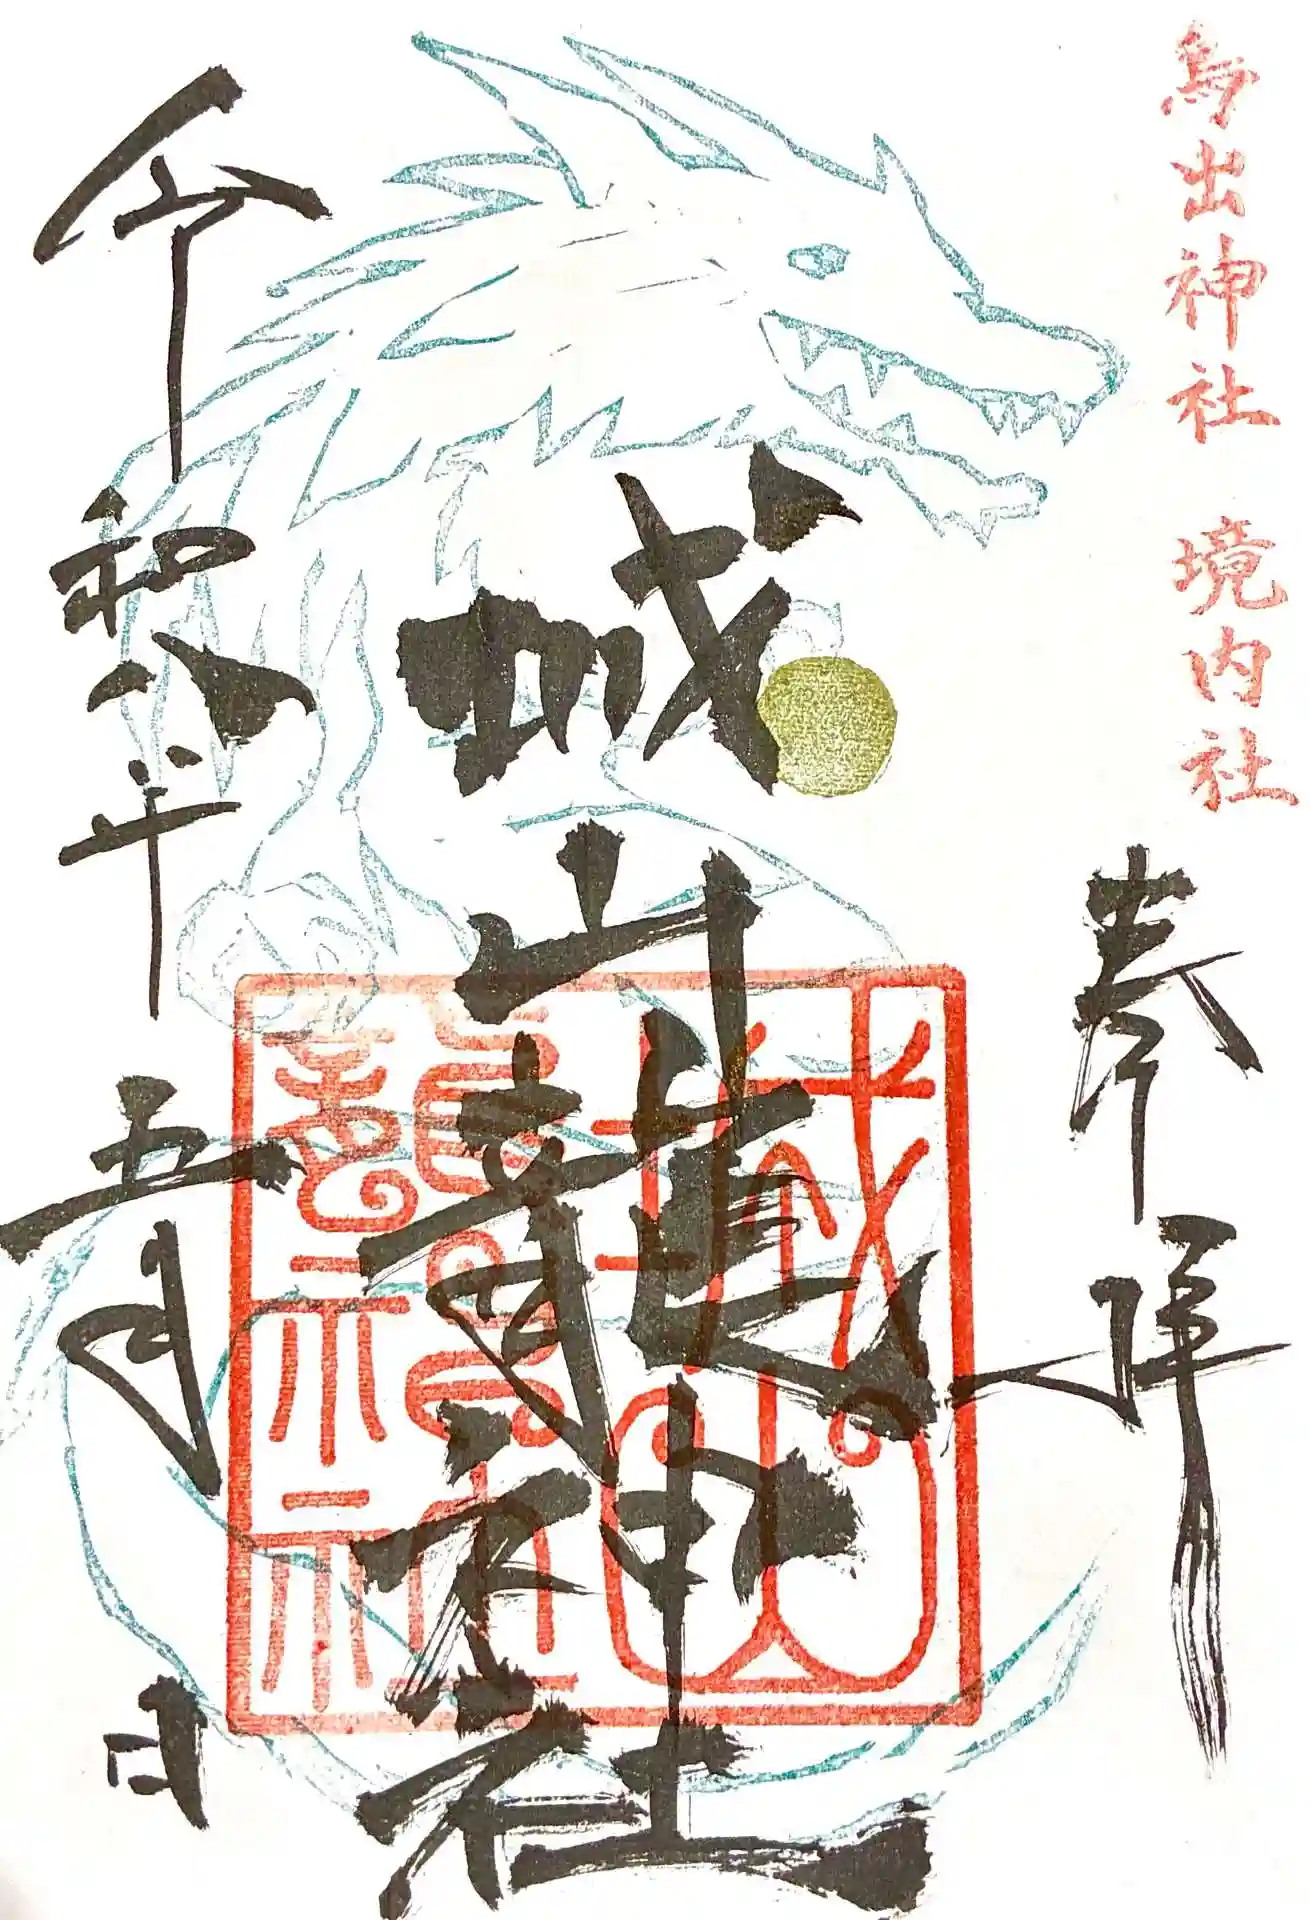 鳥出神社 境内社
奉拝
城山龍神社
城山
龍神社
令和八年 五月 日